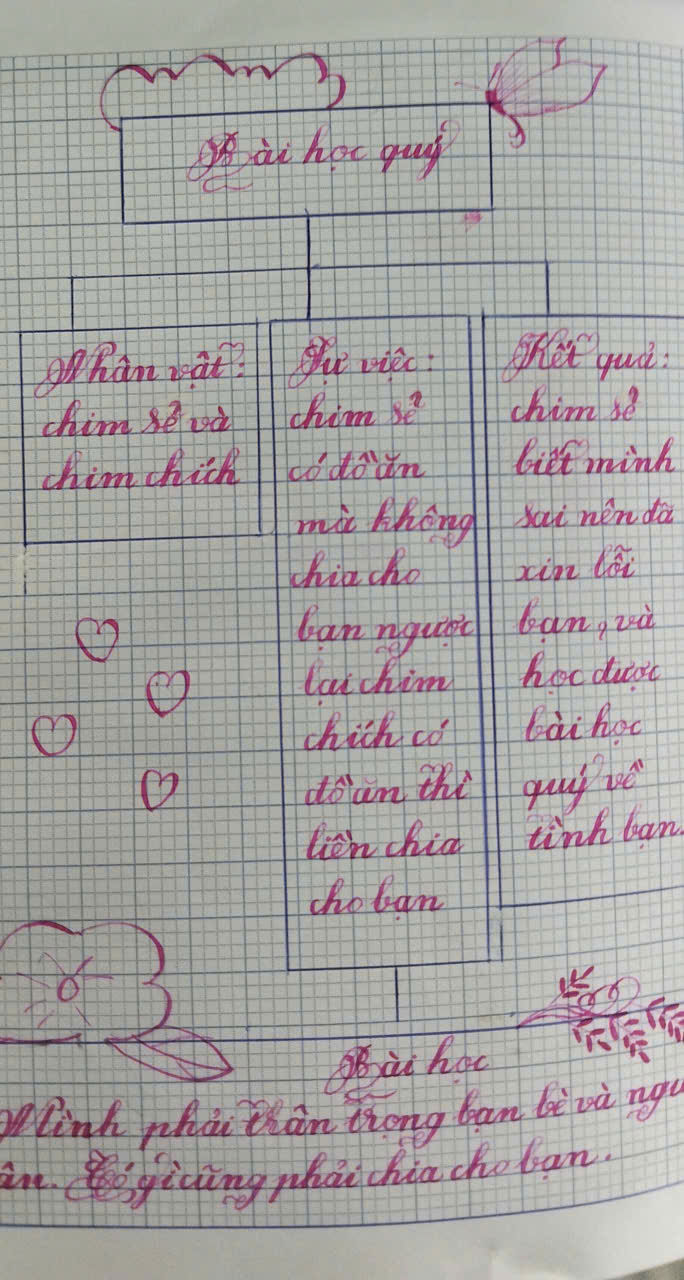 Bài học quý
Nhân vật:
chim sẻ và
chim chích
Sự việc:
chim sẻ
có đồ ăn
mà không
chia cho
bạn ngược
lại chim
chích có
đồ ăn thì
liền chia
cho bạn
Kết quả:
chim sẻ
biết mình
sai nên đã
xin lỗi
bạn, và
học được
bài học
quý về
tình bạn.
Bài học
Mình phải trân trọng bạn bè và
ân. Có gì cũng phải chia cho bạn.